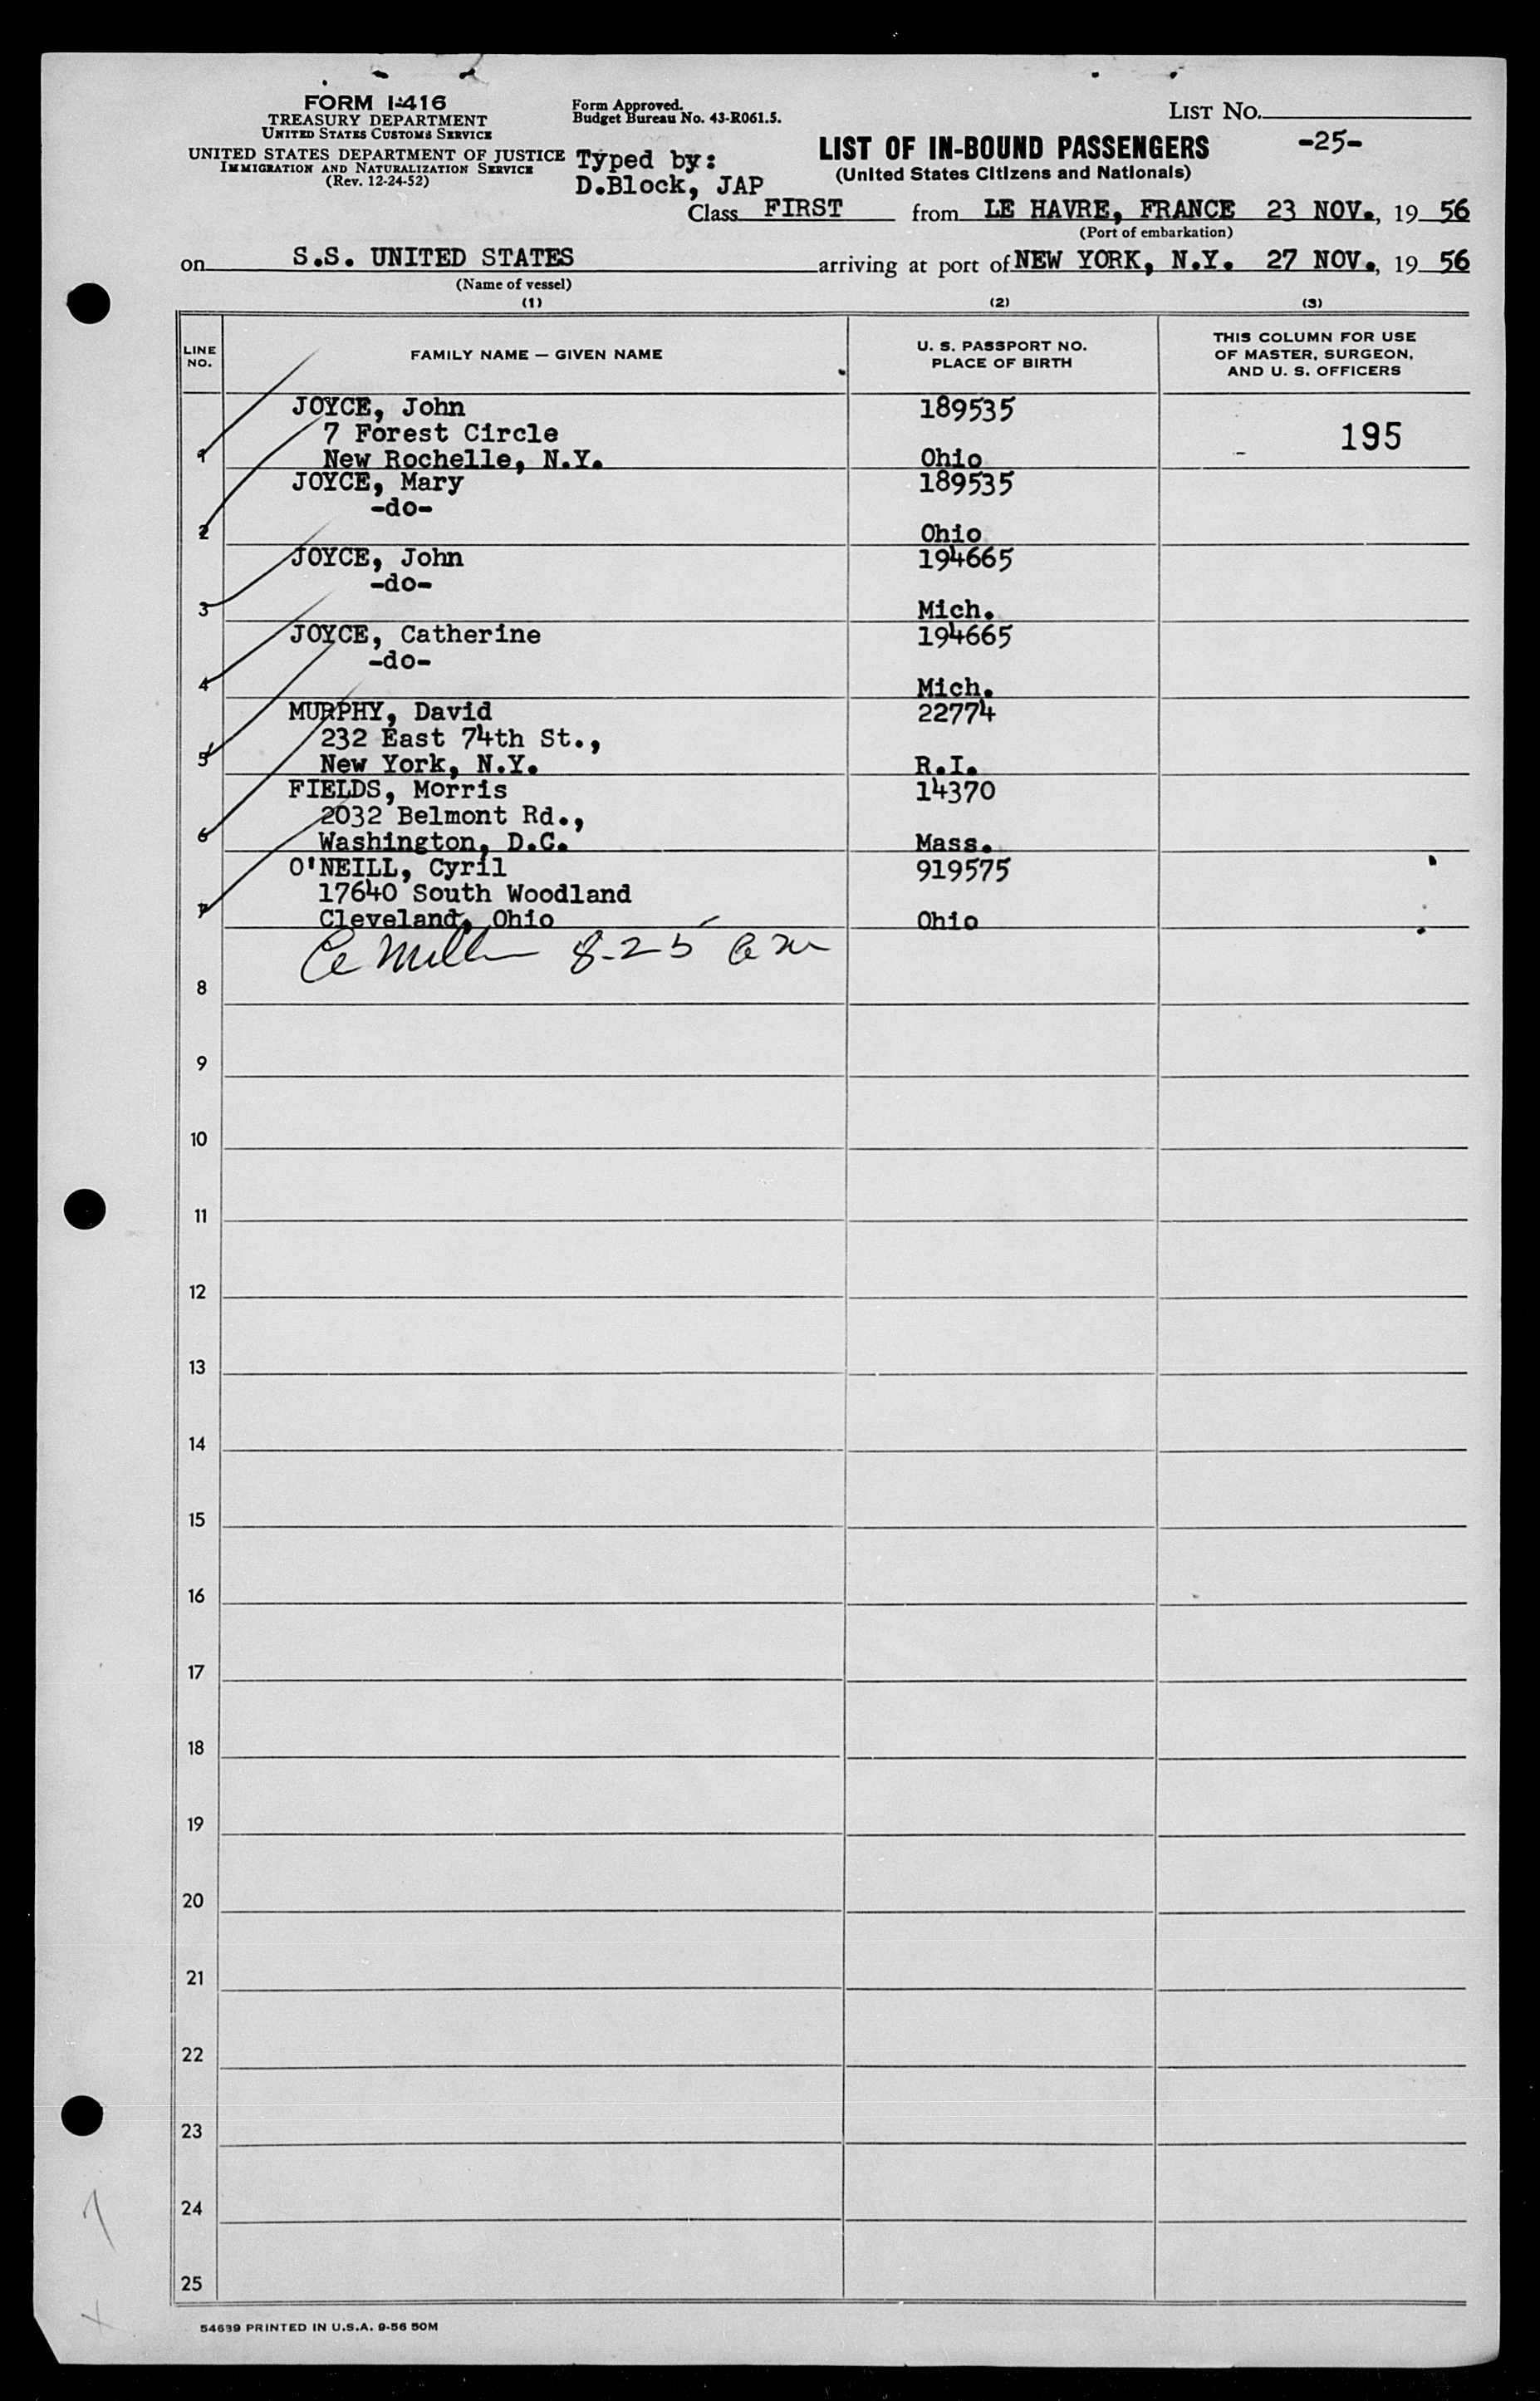 FORM I-416
TREASURY DEPARTMENT
UNITED STATES CUSTOMS SERVICE
UNITED STATES DEPARTMENT OF JUSTICE
IMMIGRATION AND NATURALIZATION SERVICE
(Rev. 12-24-52)
Form Approved.
Budget Bureau No. 43-R061.5.
Typed by:
D.Block, JAP
LIST NO.
-25-
LIST OF IN-BOUND PASSENGERS
(United States Citizens and Nationals)
Class FIRST from LE HAVRE, FRANCE 23 NOV., 19 56
(Port of embarkation)
on S.S. UNITED STATES arriving at port of NEW YORK, N.Y. 27 NOV., 19 56
(Name of vessel)
(1) (2) (3)
LINE NO.
FAMILY NAME — GIVEN NAME
U. S. PASSPORT NO.
PLACE OF BIRTH
THIS COLUMN FOR USE
OF MASTER, SURGEON,
AND U. S. OFFICERS
JOYCE, John 189535
7 Forest Circle 195
1 New Rochelle, N.Y. Ohio
JOYCE, Mary 189535
-do-
2 Ohio
JOYCE, John 194665
-do-
3 Mich.
JOYCE, Catherine 194665
-do-
4 Mich.
MURPHY, David 22774
232 East 74th St.,
5 New York, N.Y. R.I.
FIELDS, Morris 14370
2032 Belmont Rd.,
6 Washington, D.C. Mass.
O'NEILL, Cyril 919575
17640 South Woodland
7 Cleveland, Ohio Ohio
8-25
8
9
10
11
12
13
14
15
16
17
18
19
20
21
22
23
24
25
7
54639 PRINTED IN U.S.A. 9-56 50M